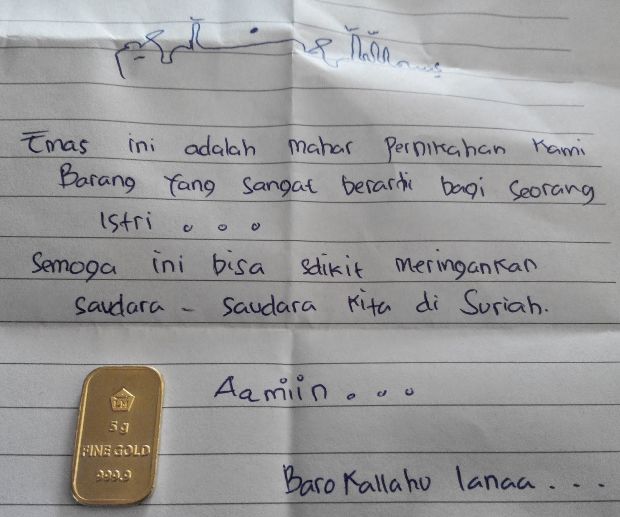 Emas ini adalah mahar Pernikahan Kami
Barang Yang sangat berarti bagi Seorang
Istri . . .
Semoga ini bisa sdikit meringankan
saudara - saudara Kita di Suriah.
Aamiin . . .
BaroKallahu lanaa . . .
5g
FINE GOLD
999,9